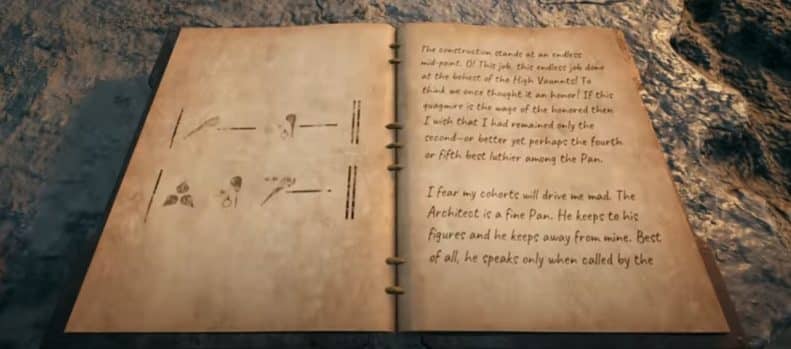 The construction stands at an endless
mid-point. O! This job, this endless job done
at the behest of the High Vaunnts! To
think we once thought it an honor! If this
quagmire is the wage of the honored then
I wish that I had remained only the
second—or better yet perhaps the fourth
or fifth best luthier among the Pan.
I fear my cohorts will drive me mad. The
Architect is a fine Pan. He keeps to his
figures and he keeps away from mine. Best
of all, he speaks only when called by the